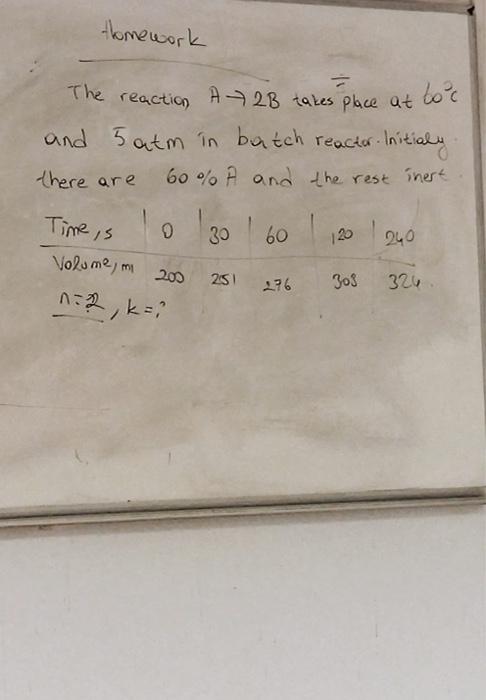 Homework
The reaction A → 2B takes place at 60°C
and 5 atm in batch reactor. Initialy
there are 60 % A and the rest inert.
Time, s | 0 | 30 | 60 | 120 | 240
Volume, ml 200 251 276 303 324
n=2, k=?